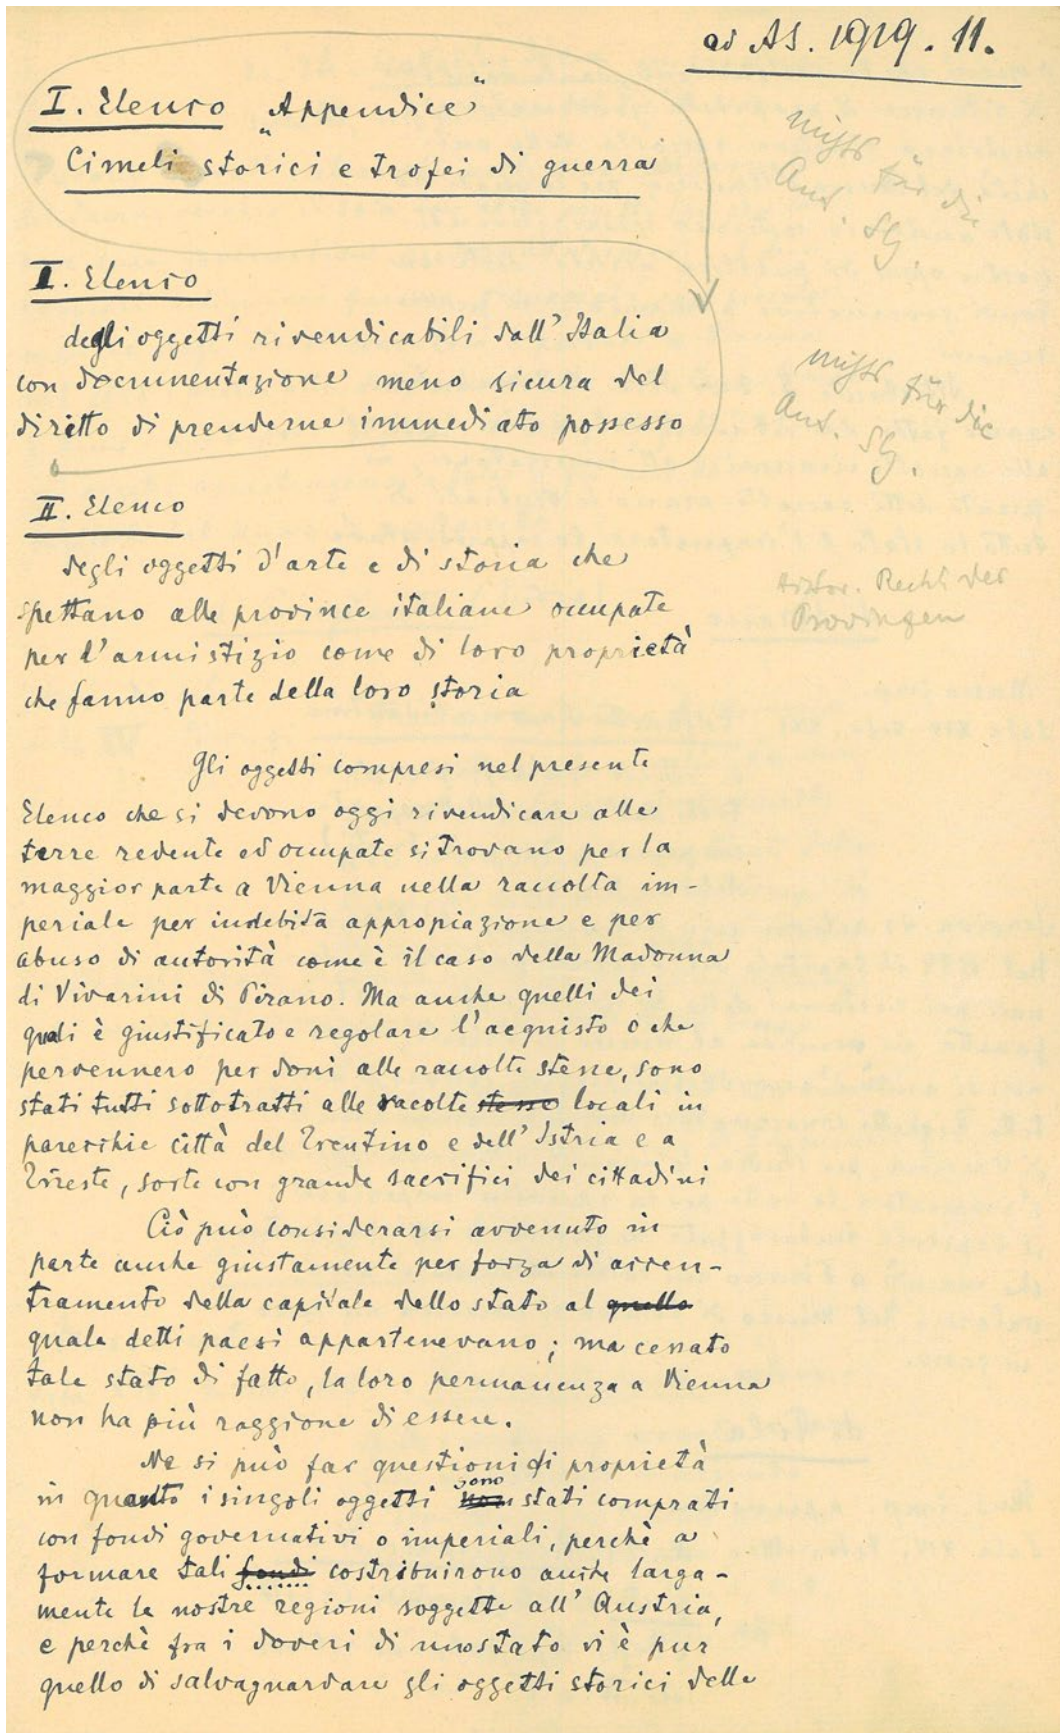 ad AS. 1919. 11.
I. Elenco "Appendice"
Cimeli storici e trofei di guerra
nichts für die
Ant. Slg.
I. Elenco
degli oggetti rivendicabili dall' Italia
con documentazione meno sicura del
diritto di prenderne immediato possesso
nichts für die
Ant. Slg.
II. Elenco
degli oggetti d'arte e di storia che
spettano alle province italiane occupate
per l'armistizio come di loro proprietà
che fanno parte della loro storia
histor. Recht der
Provinzen
Gli oggetti compresi nel presente
Elenco che si devono oggi rivendicare alle
terre redente ed occupate si trovano per la
maggior parte a Vienna nella raccolta im-
periale per indebita appropiazione e per
abuso di autorità come è il caso della Madonna
di Vivarini di Pirano. Ma anche quelli dei
quali è giustificato e regolare l'acquisto o che
pervennero per doni alle raccolte stesse, sono
stati tutti sottotratti alle racolte stesse locali in
parecchie città del Trentino e dell' Istria e a
Trieste, sorte con grande sacrifici dei cittadini
Ciò può considerarsi avvenuto in
parte anche giustamente per forza di accen-
tramento della capitale dello stato al quello
quale detti paesi appartenevano; ma cessato
tale stato di fatto, la loro permanenza a Vienna
non ha più raggione di essere.
Ne si può far questioni di proprietà
in quanto i singoli oggetti non sono stati comprati
con fondi governativi o imperiali, perchè a
formare tali fondi costribuirono anche larga-
mente le nostre regioni soggette all' Austria,
e perchè fra i doveri di uno stato vi è pur
quello di salvaguardare gli oggetti storici delle